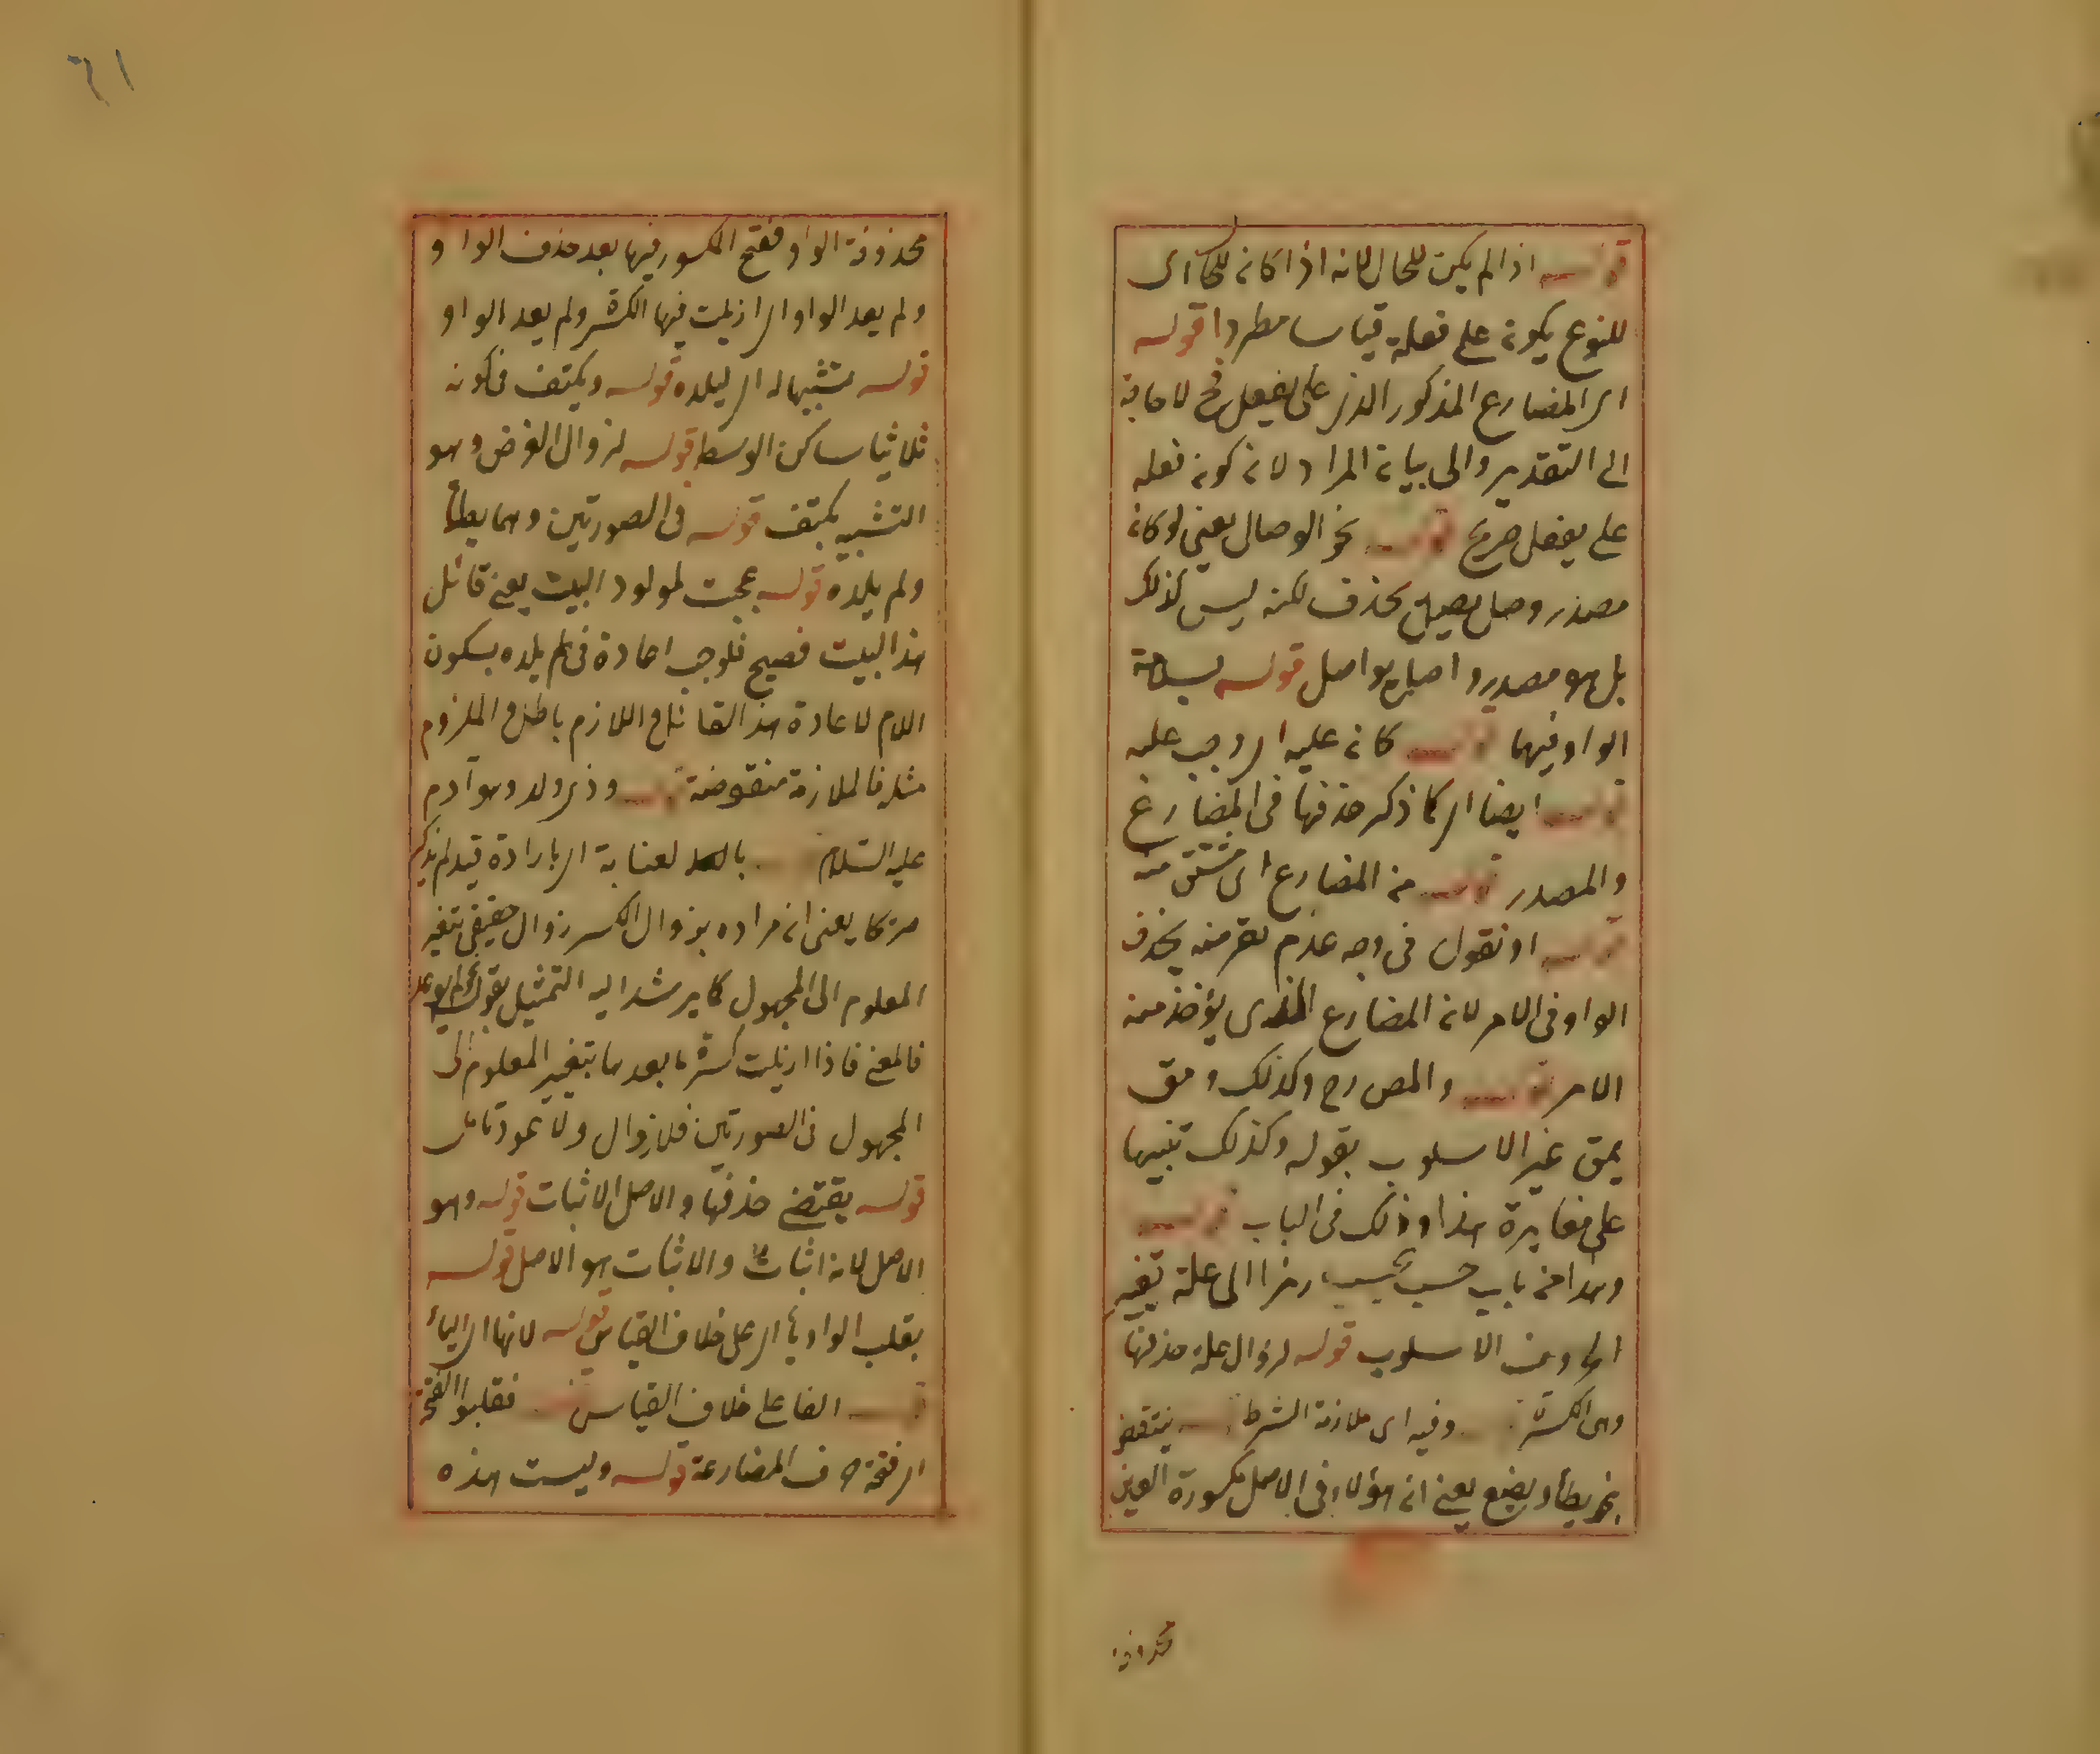 قوله اذا لم يكن للحال لانه اذا كان للحال اى
للنوع يكون على فعلة قياسا مطردا قوله
اى المضارع المذكور الذى على يفعل لا حاجة
الى التقدير والى بيان المراد لان كون فعله
على يفعل صريح قوله نحو الوصال يعنى لو كان
مصدر وصل يصل بحذف لكنه ليس كذلك
بل هو مصدر واصل يواصل قوله لسلامة
الواو فيهما قوله كان عليه اى وجب عليه
قوله ايضا اى كما ذكر حذفها فى المضارع
والمصدر قوله من المضارع اى مشتق منه
قوله او نقول فى وجه عدم تعرضه بحذف
الواو فى الامر لان المضارع الذى يؤخذ منه
الامر قوله والمص رح وكذلك ومق
يمق غير الاسلوب بقوله وكذلك تنبيها
على مغايرة هذا وذلك فى الباب قوله
وهذا من باب حسب يحسب رمزا الى علة تغيير
الاسلوب قوله لزوال علة حذفها
وهى الكسرة وفيه اى ملازمة الشرط ينتقض
بنحو يطأ ويضع يعنى ان هؤلاء فى الاصل مكسورة العين
محذوفة
٦١
محذوفة الواو ففتح المكسور فيها بعد حذف الواو
ولم يعد الواو اى ازيلت فيها الكسرة ولم يعد الواو
قوله تشبيها له اى ليلده قوله وبكتف فى كونه
ثلاثيا ساكن الوسط قوله لزوال الغرض وهو
التشبيه بكتف قوله فى الصورتين وهما يطأ
ولم يلده قوله عجبت لمولود البيت يعنى قائل
هذا البيت فصيح فلو وجب اعادة فى لم يلده بسكون
اللام لاعادة هذا القائل واللازم باطل والملزوم
مثله فالملازمة منقوضة قوله وذى ولد وهو آدم
عليه السلام بالعناية اى بارادة قيد لم يذكر
يعنى ان مراده بزوال الكسر زوال حقيقى بتغير
المعلوم الى المجهول كما يرشد اليه التمثيل بقوله
فالمعنى فاذا ازيلت كسرة ما بعدها بتغيير المعلوم الى
المجهول فى الصورتين فلا زوال ولا عود تامل
قوله يقتضى حذفها والاصل الاثبات قوله وهو
الاصل لانه اثبات والاثبات هو الاصل قوله
بقلب الواو ياء اى على خلاف القياس قوله لانها اى الياء
قوله الفا على خلاف القياس قوله فقلبوا الفتحة
اى فتحة حرف المضارعة قوله وليست هذه